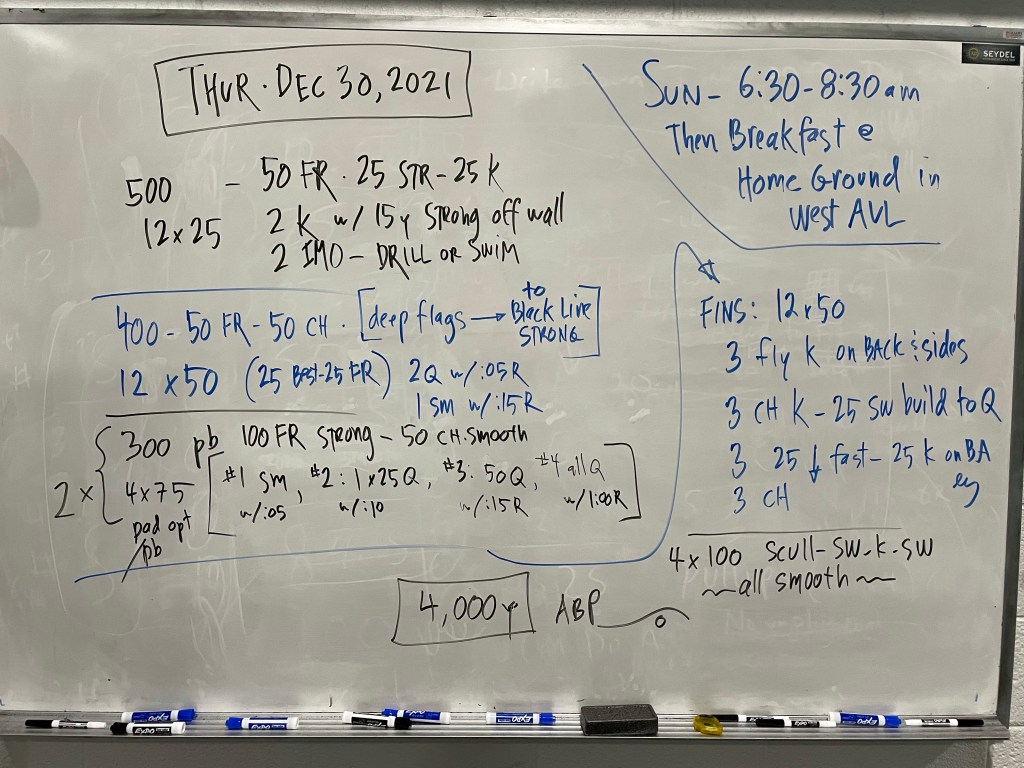 THUR · DEC 30, 2021
500 – 50 FR · 25 STR – 25 K
12 x 25 2 K w/ 15y strong off wall
2 IMO – DRILL OR SWIM
400 – 50 FR – 50 CH · [deep flags → to Black Line STRONG]
12 x 50 (25 Best – 25 FR) 2Q w/ :05R
1 sm w/ :15R
2 x { 300 pb 100 FR strong – 50 CH smooth
4 x 75 [#1 sm, #2: 1x25Q, #3: 50Q, #4 all Q
w/ :05 w/ :10 w/ :15R w/ 1:00R]
pad opt
/pb
4,000y ABP
SUN – 6:30 – 8:30 am
Then Breakfast @
Home Ground in
West AVL
FINS: 12 x 50
3 fly k on BACK & sides
3 CH K – 25 SW build to Q
3 25 ↓ fast – 25 K on BA
3 CH
4 x 100 scull – SW – K – SW
~ all smooth ~
SEYDEL
EXPO
EXPO
EXPO
EXPO
EXPO
EXPO